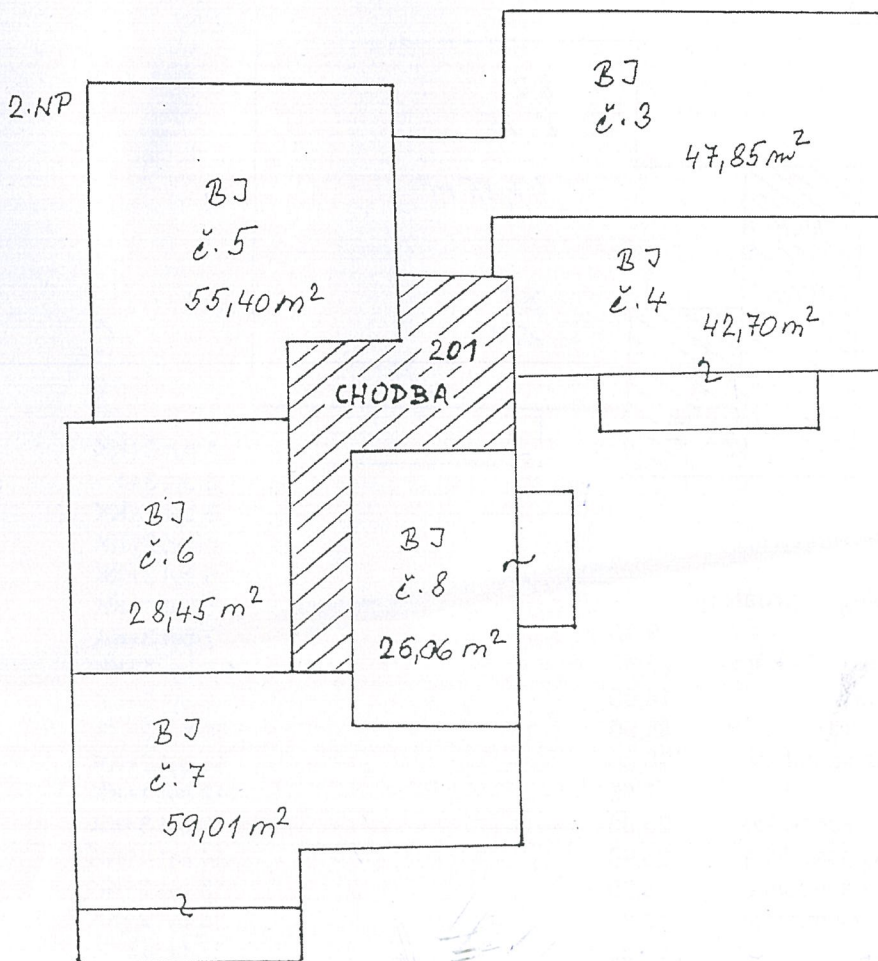 2.NP
BJ
č.3
47,85 m²
BJ
č.5
55,40 m²
BJ
č.4
42,70 m²
201
CHODBA
BJ
č.6
28,45 m²
BJ
č.8
26,06 m²
BJ
č.7
59,01 m²